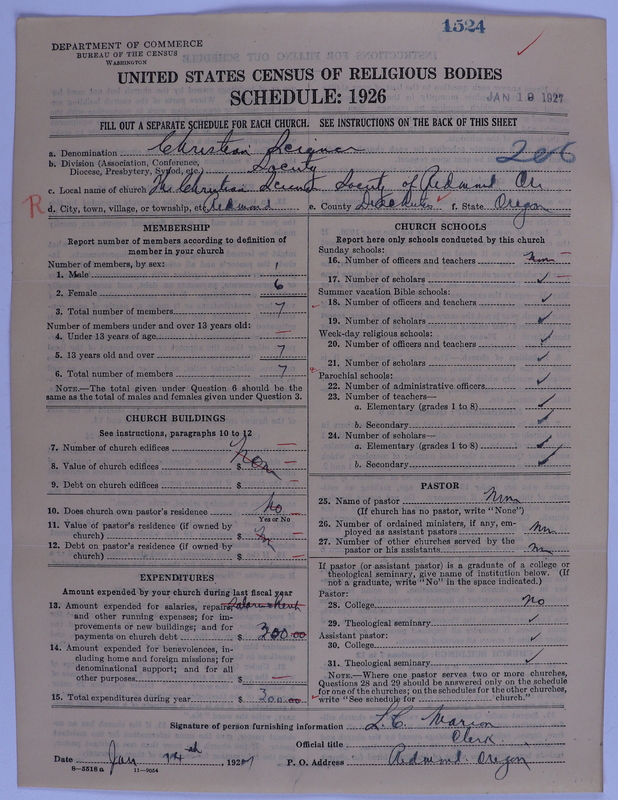 1524
DEPARTMENT OF COMMERCE
BUREAU OF THE CENSUS
WASHINGTON
UNITED STATES CENSUS OF RELIGIOUS BODIES
SCHEDULE: 1926
JAN 19 1927
FILL OUT A SEPARATE SCHEDULE FOR EACH CHURCH. SEE INSTRUCTIONS ON THE BACK OF THIS SHEET
a. Denomination Christian Science
206
b. Division (Association, Conference, Diocese, Presbytery, Synod, etc.) Society
c. Local name of church The Christian Science Society of Redmond Or
R d. City, town, village, or township, etc. Redmond e. County Deschutes f. State Oregon
MEMBERSHIP
Report number of members according to definition of
member in your church
Number of members, by sex:
1. Male 1
2. Female 6
3. Total number of members 7
Number of members under and over 13 years old:
4. Under 13 years of age —
5. 13 years old and over 7
6. Total number of members 7
NOTE.—The total given under Question 6 should be
same as the total of males and females given under Question 3.
CHURCH BUILDINGS
See instructions, paragraphs 10 to 12
7. Number of church edifices —
8. Value of church edifices $ None —
9. Debt on church edifices $ —
10. Does church own pastor's residence No —
Yes or No
11. Value of pastor's residence (if owned by
church) $ —
12. Debt on pastor's residence (if owned by
church) $ —
EXPENDITURES
Amount expended by your church during last fiscal year
13. Amount expended for salaries, repairs,
and other running expenses; for im-
provements or new buildings; and for
payments on church debt $ 300.00
14. Amount expended for benevolences, in-
cluding home and foreign missions; for
denominational support; and for all
other purposes $ —
15. Total expenditures during year $ 300.00
CHURCH SCHOOLS
Report here only schools conducted by this church
Sunday schools:
16. Number of officers and teachers None —
17. Number of scholars ✓ —
Summer vacation Bible schools:
18. Number of officers and teachers ✓
19. Number of scholars ✓
Week-day religious schools:
20. Number of officers and teachers ✓
21. Number of scholars ✓
Parochial schools:
22. Number of administrative officers ✓
23. Number of teachers—
a. Elementary (grades 1 to 8) ✓
b. Secondary ✓
24. Number of scholars—
a. Elementary (grades 1 to 8) ✓
b. Secondary ✓
PASTOR
25. Name of pastor None
(If church has no pastor, write "None")
26. Number of ordained ministers, if any, em-
ployed as assistant pastors None
27. Number of other churches served by the
pastor or his assistants None
If pastor (or assistant pastor) is a graduate of a college or
theological seminary, give name of institution below. (If
not a graduate, write "No" in the space indicated.)
Pastor:
28. College No
29. Theological seminary ✓
Assistant pastor:
30. College ✓
31. Theological seminary ✓
NOTE.—Where one pastor serves two or more churches,
Questions 28 and 29 should be answered only on the schedule
for one of the churches; on the schedules for the other churches,
write "See schedule for church."
Signature of person furnishing information L. C. Marion
Official title Clerk
Date Jan 14th, 1927 P. O. Address Redmond Oregon
8—5518a 11—9054